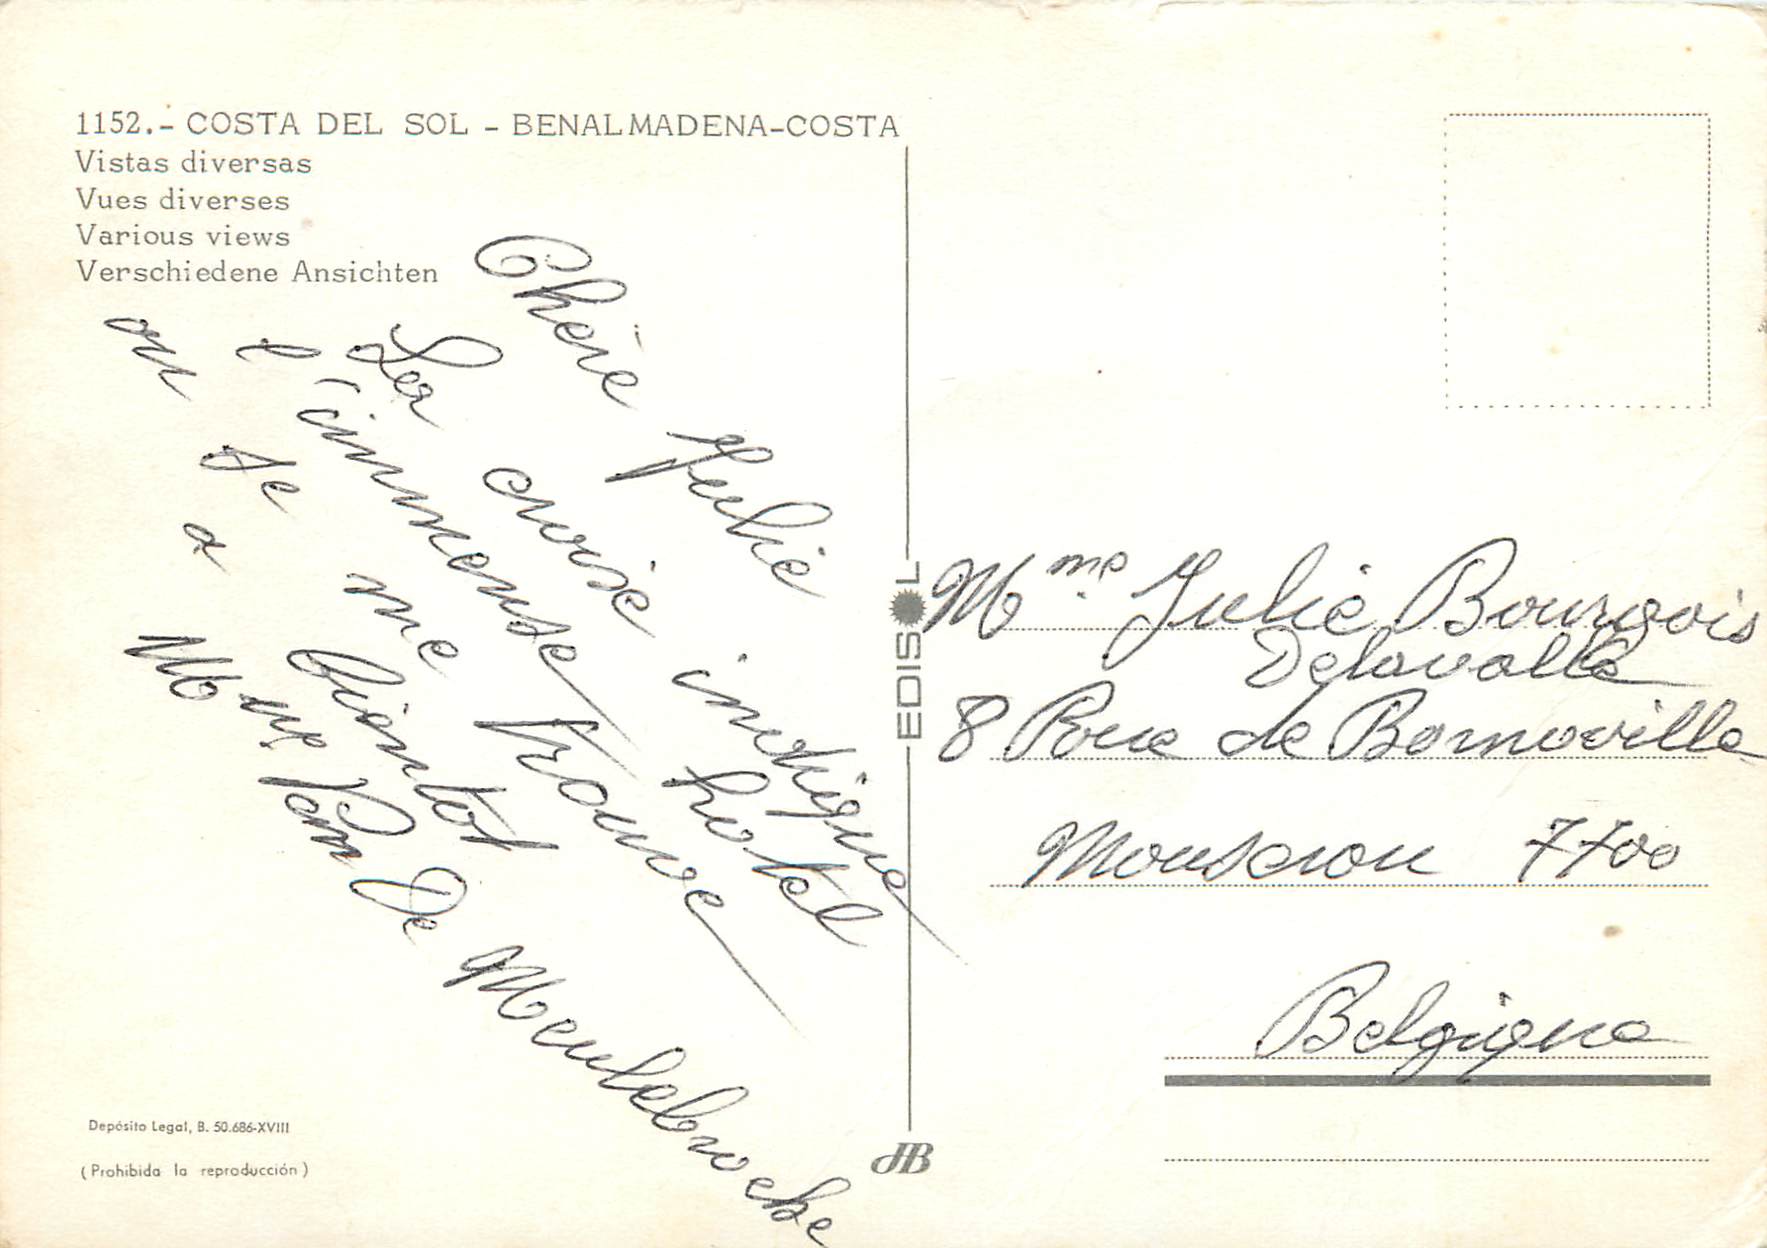 1152.- COSTA DEL SOL - BENALMADENA-COSTA
Vistas diversas
Vues diverses
Various views
Verschiedene Ansichten
Chère Julie
La croix indique
l'immense hotel
ou je me trouve
a bientot
Mme Van De Meulebroeke
Depósito Legal, B. 50.686-XVIII
(Prohibida la reproducción)
EDISOL
JB
Mme. Julie Bourgois
Delavallé
8 Rue de Bornoville
Mouscron 7700
Belgique